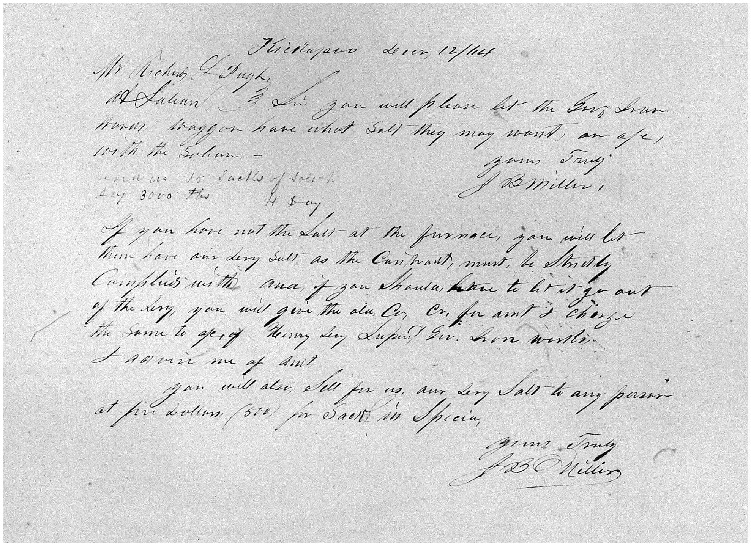 Kickapoo Decr 12/64
Mr Richard Pugh,
At Salien Dr Sir, you will please let the Gov Iron
works waggon have what Salt they may want, on a/c,
with the Salien.—
15 Sacks of
Say 3000 lbs 4 Say
If you have not the Salt at the furnace, you will let
them have our Levy Salt, as the Contract, must, be Strictly
Complied with and if you Should have to let it go out
of the Levy, you will give the old Co, Cr, for amt & charge
the Same to a/c, of Henry Levy Supert Gov. Iron works.
& advise me of amt
you will also, Sell for us, our Levy Salt to any person
at five Dollars (500) per Sack in Specie,
yours Truly
J B Miller,
yours Truly
J B Miller